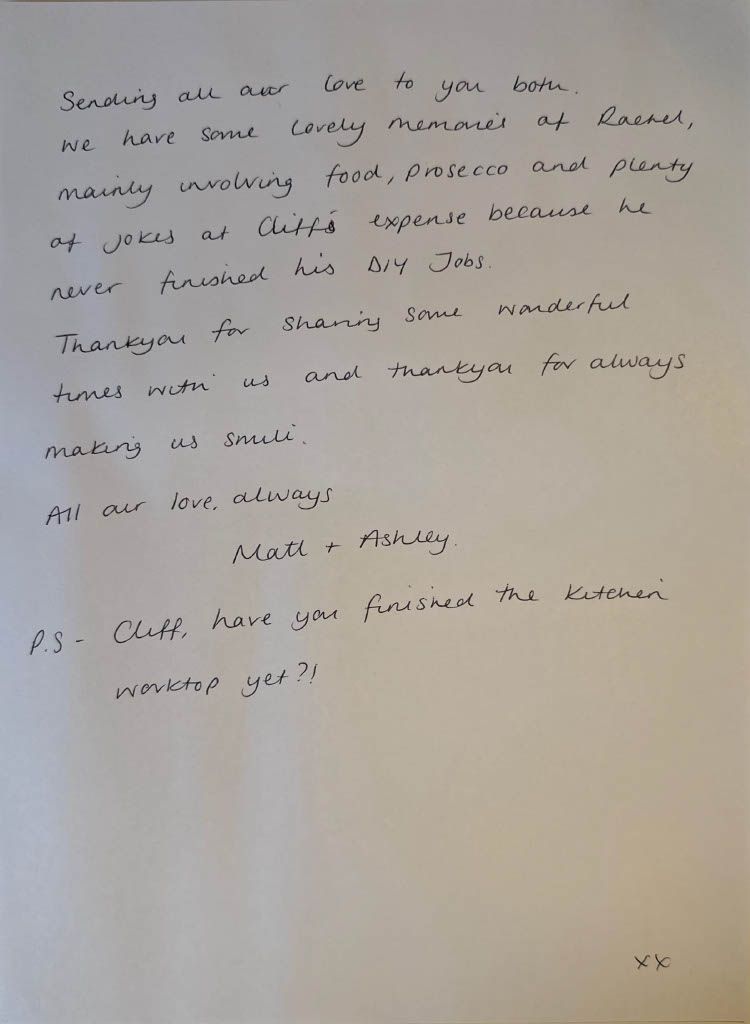 Sending all our love to you both.
We have some lovely memories of Rachel,
mainly involving food, prosecco and plenty
of jokes at Cliff's expense because he
never finished his DIY Jobs.
Thankyou for sharing some wonderful
times with us and thankyou for always
making us smile.
All our love, always
Matt + Ashley.
P.S - Cliff, have you finished the kitchen
worktop yet?!
xx